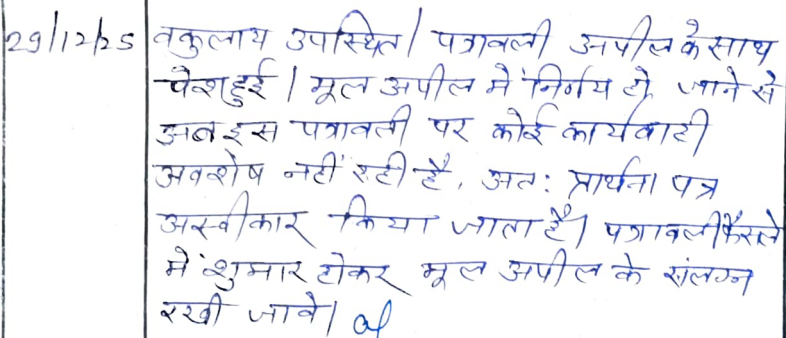 29/12/25 वकुलाय उपस्थित। पत्रावली अपील के साथ
पेश हुई। मूल अपील में निर्णय हो जाने से
अब इस पत्रावली पर कोई कार्यवाही
अवशेष नहीं रही है, अतः प्रार्थना पत्र
अस्वीकार किया जाता है। पत्रावली फैसले
में शुमार होकर मूल अपील के संलग्न
रखी जावे।